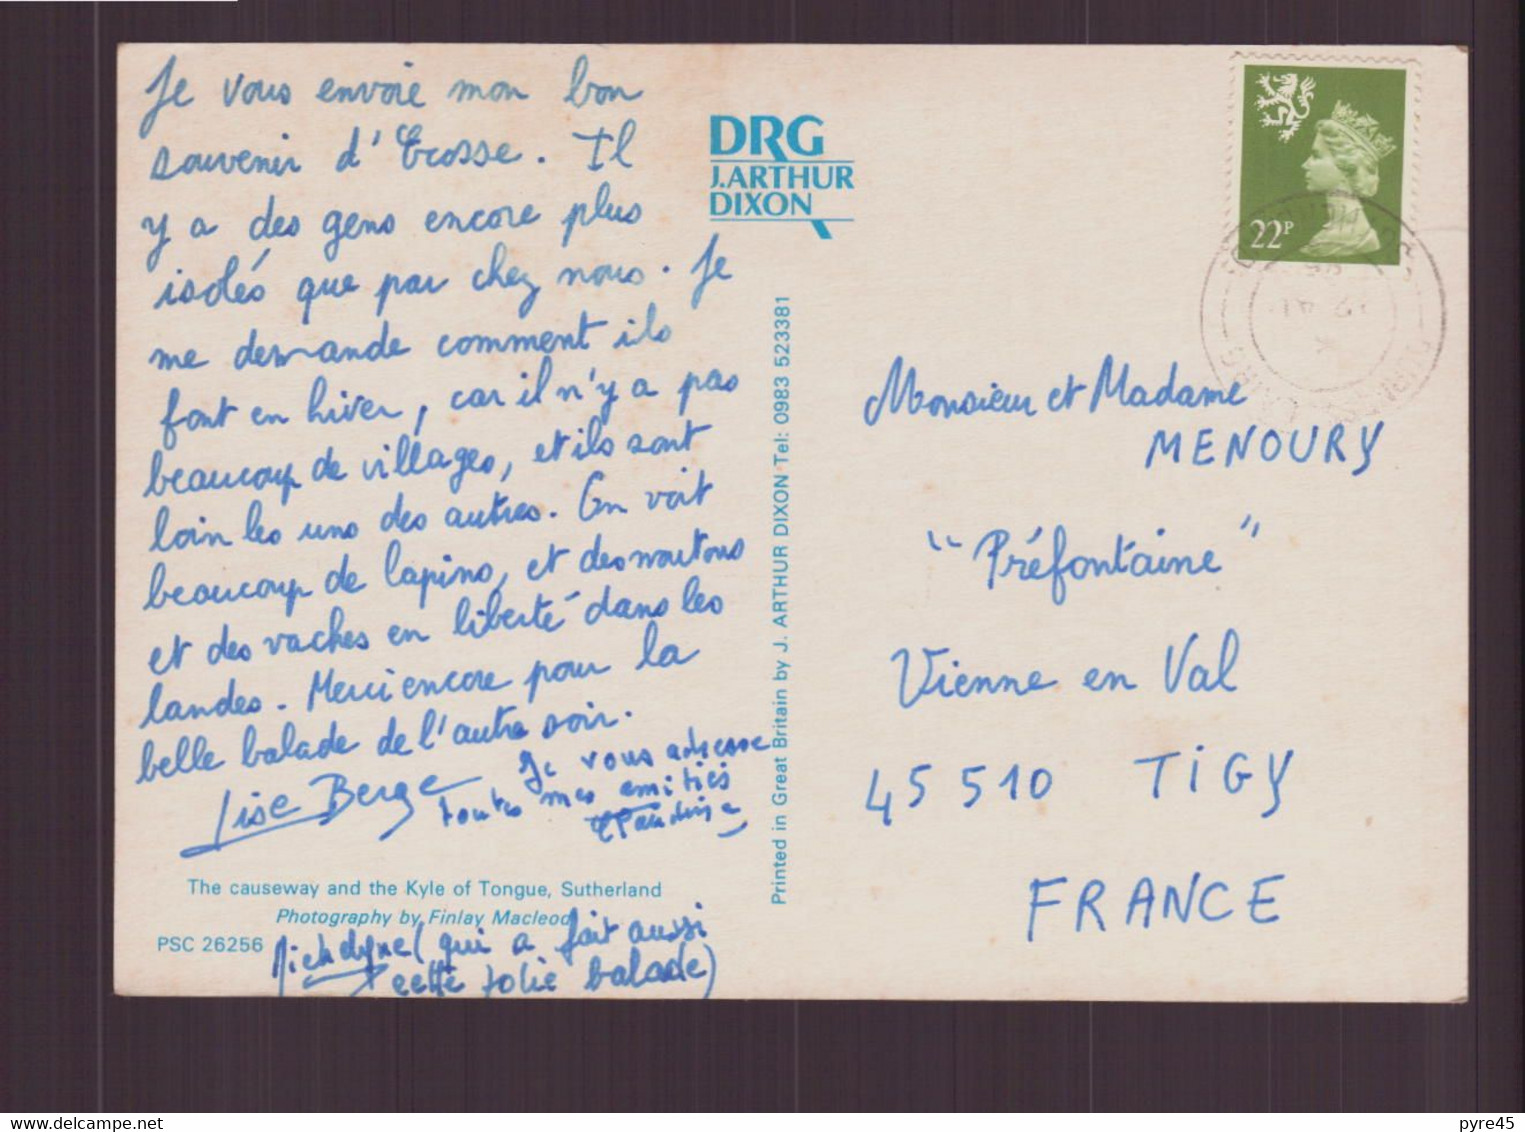 Je vous envoie mon bon
souvenir d'Ecosse. Il
y a des gens encore plus
isolés que par chez nous. Je
me demande comment ils
font en hiver, car il n'y a pas
beaucoup de villages, et ils sont
loin les uns des autres. On voit
beaucoup de lapins, et des moutons
et des vaches en liberté dans les
landes. Merci encore pour la
belle balade de l'autre soir.
Lise Berge
Je vous adresse
toutes mes amitiés
Claudine
The causeway and the Kyle of Tongue, Sutherland
Photography by Finlay Macleod
PSC 26256
Michelyne (qui a fait aussi
cette jolie balade)
DRG
J.ARTHUR
DIXON
Printed in Great Britain by J. ARTHUR DIXON Tel: 0983 523381
22P
LAIRG
Monsieur et Madame
MENOURY
"Préfontaine"
Vienne en Val
45510 TIGY
FRANCE
delcampe.net
pyre45